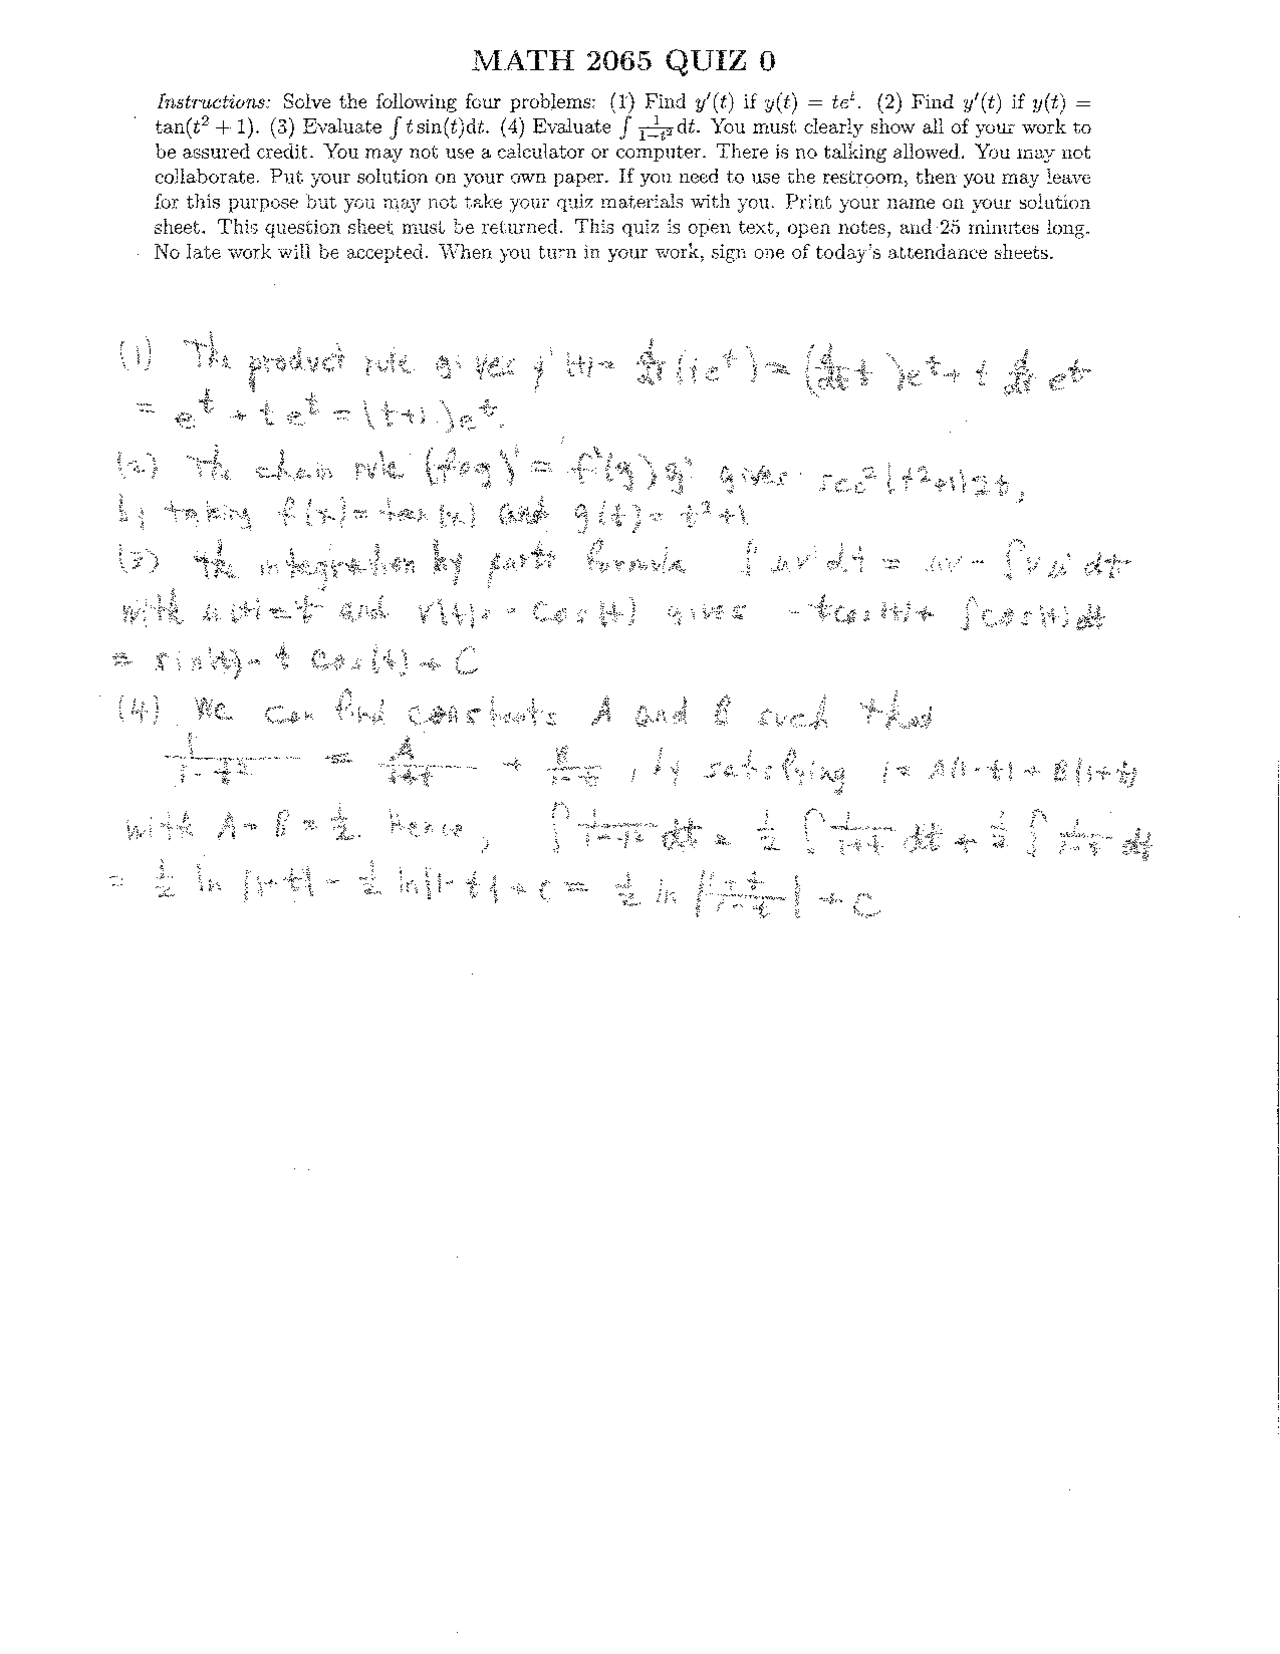 MATH 2065 QUIZ 0
Instructions: Solve the following four problems: (1) Find y′(t) if y(t) = te^t. (2) Find y′(t) if y(t) =
tan(t² + 1). (3) Evaluate ∫ t sin(t)dt. (4) Evaluate ∫ 1/(1−t²) dt. You must clearly show all of your work to
be assured credit. You may not use a calculator or computer. There is no talking allowed. You may not
collaborate. Put your solution on your own paper. If you need to use the restroom, then you may leave
for this purpose but you may not take your quiz materials with you. Print your name on your solution
sheet. This question sheet must be returned. This quiz is open text, open notes, and 25 minutes long.
No late work will be accepted. When you turn in your work, sign one of today's attendance sheets.
(1) The product rule gives y′(t) = d/dt (te^t) = (d/dt t)e^t + t d/dt e^t
= e^t + te^t = (t+1)e^t.
(2) The chain rule (f∘g)′ = f′(g)g′ gives sec²(t²+1)2t,
by taking f(x) = tan(x) and g(t) = t²+1
(3) The integration by parts formula ∫ uv′dt = uv − ∫vu′dt
with u(t) = t and v(t) = −cos(t) gives −tcos(t) + ∫cos(t)dt
= sin(t) − t cos(t) + C
(4) We can find constants A and B such that
1/(1−t²) = A/(1+t) + B/(1−t), by satisfying 1 = A(1−t) + B(1+t)
with A = B = 1/2. Hence, ∫ 1/(1−t²) dt = 1/2 ∫ 1/(1+t) dt + 1/2 ∫ 1/(1−t) dt
= 1/2 ln|1+t| − 1/2 ln|1−t| + C = 1/2 ln |(1+t)/(1−t)| + C